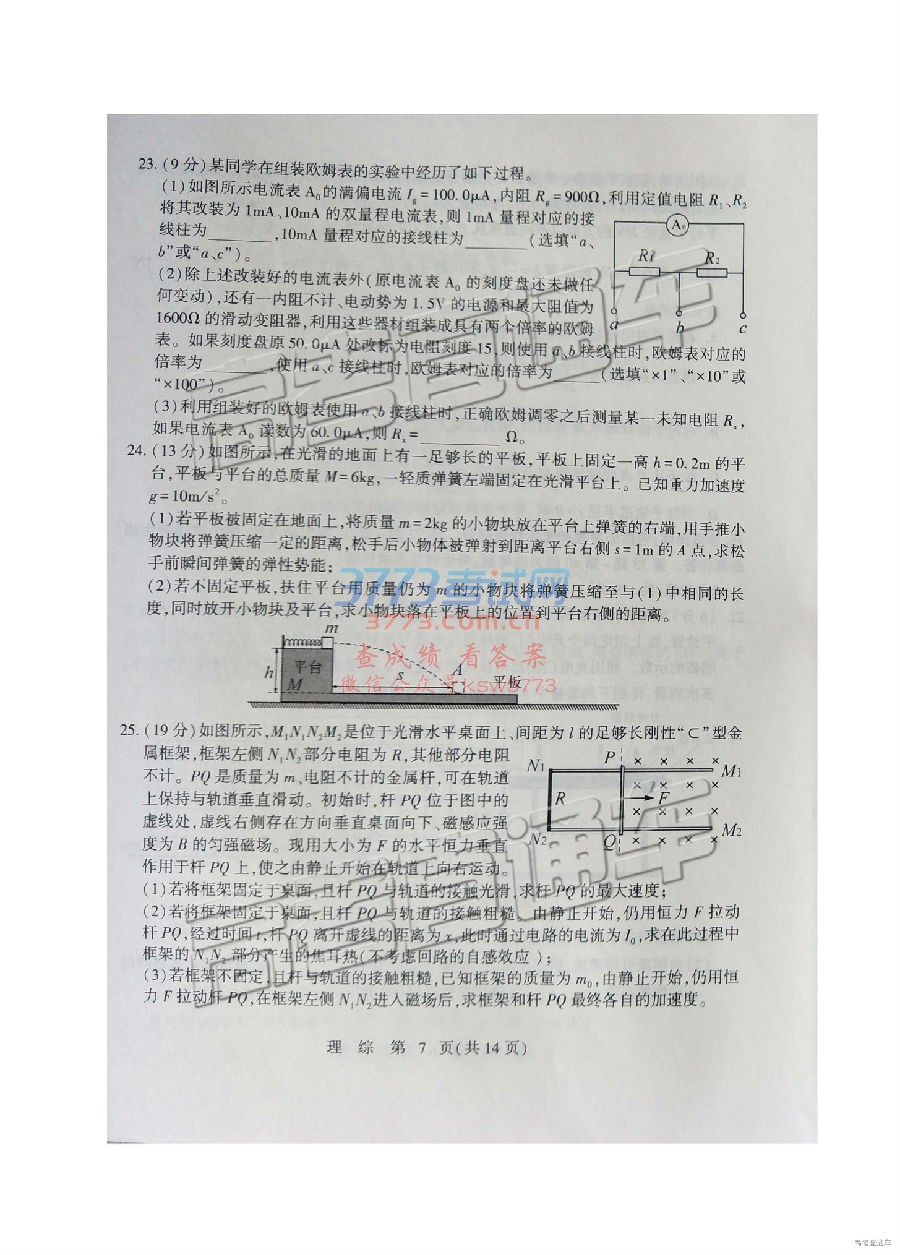 23.(9分)某同学在组装欧姆表的实验中经历了如下过程。
(1)如图所示电流表 A₀的满偏电流 Ig = 100.0μA,内阻 Rg = 900Ω,利用定值电阻 R₁、R₂
将其改装为 1mA、10mA 的双量程电流表,则 1mA 量程对应的接
线柱为________,10mA 量程对应的接线柱为________(选填“a、
b”或“a、c”)。
(2)除上述改装好的电流表外(原电流表 A₀ 的刻度盘还未做任
何变动),还有一内阻不计、电动势为 1.5V 的电源和最大阻值为
1600Ω 的滑动变阻器,利用这些器材组装成具有两个倍率的欧姆
表。如果刻度盘原 50.0μA 处改标为电阻刻度 15,则使用 a、b 接线柱时,欧姆表对应的
倍率为________,使用 a、c 接线柱时,欧姆表对应的倍率为______(选填“×1”、“×10”或
“×100”)。
(3)利用组装好的欧姆表使用 a、b 接线柱时,正确欧姆调零之后测量某一未知电阻 Rx,
如果电流表 A₀ 读数为 60.0μA,则 Rx = ________ Ω。
A₀
R₁
R₂
a
b
c
24.(13分)如图所示,在光滑的地面上有一足够长的平板,平板上固定一高 h = 0.2m 的平
台,平板与平台的总质量 M = 6kg,一轻质弹簧左端固定在光滑平台上。已知重力加速度
g = 10m/s²。
(1)若平板被固定在地面上,将质量 m = 2kg 的小物块放在平台上弹簧的右端,用手推小
物块将弹簧压缩一定的距离,松手后小物体被弹射到距离平台右侧 s = 1m 的 A 点,求松
手前瞬间弹簧的弹性势能;
(2)若不固定平板,扶住平台用质量仍为 m 的小物块将弹簧压缩至与(1)中相同的长
度,同时放开小物块及平台,求小物块落在平板上的位置到平台右侧的距离。
m
h
平台
M
s
A
平板
25.(19分)如图所示,M₁N₁N₂M₂是位于光滑水平桌面上、间距为 l 的足够长刚性“⊂”型金
属框架,框架左侧 N₁N₂部分电阻为 R,其他部分电阻
不计。PQ 是质量为 m、电阻不计的金属杆,可在轨道
上保持与轨道垂直滑动。初始时,杆 PQ 位于图中的
虚线处,虚线右侧存在方向垂直桌面向下、磁感应强
度为 B 的匀强磁场。现用大小为 F 的水平恒力垂直
作用于杆 PQ 上,使之由静止开始在轨道上向右运动。
N₁
P
M₁
R
F
N₂
Q
M₂
(1)若将框架固定于桌面,且杆 PQ 与轨道的接触光滑,求杆 PQ 的最大速度;
(2)若将框架固定于桌面,且杆 PQ 与轨道的接触粗糙。由静止开始,仍用恒力 F 拉动
杆 PQ,经过时间 t,杆 PQ 离开虚线的距离为 x,此时通过电路的电流为 I₀,求在此过程中
框架的 N₁N₂ 部分产生的焦耳热(不考虑回路的自感效应);
(3)若框架不固定,且杆与轨道的接触粗糙,已知框架的质量为 m₀,由静止开始,仍用恒
力 F 拉动杆 PQ,在框架左侧 N₁N₂进入磁场后,求框架和杆 PQ 最终各自的加速度。
理 综 第 7 页(共14页)
高考直通车
高考直通车
3773考试网
www.3773.com.cn
查成绩 看答案
微信公众号ksw3773
高考直通车